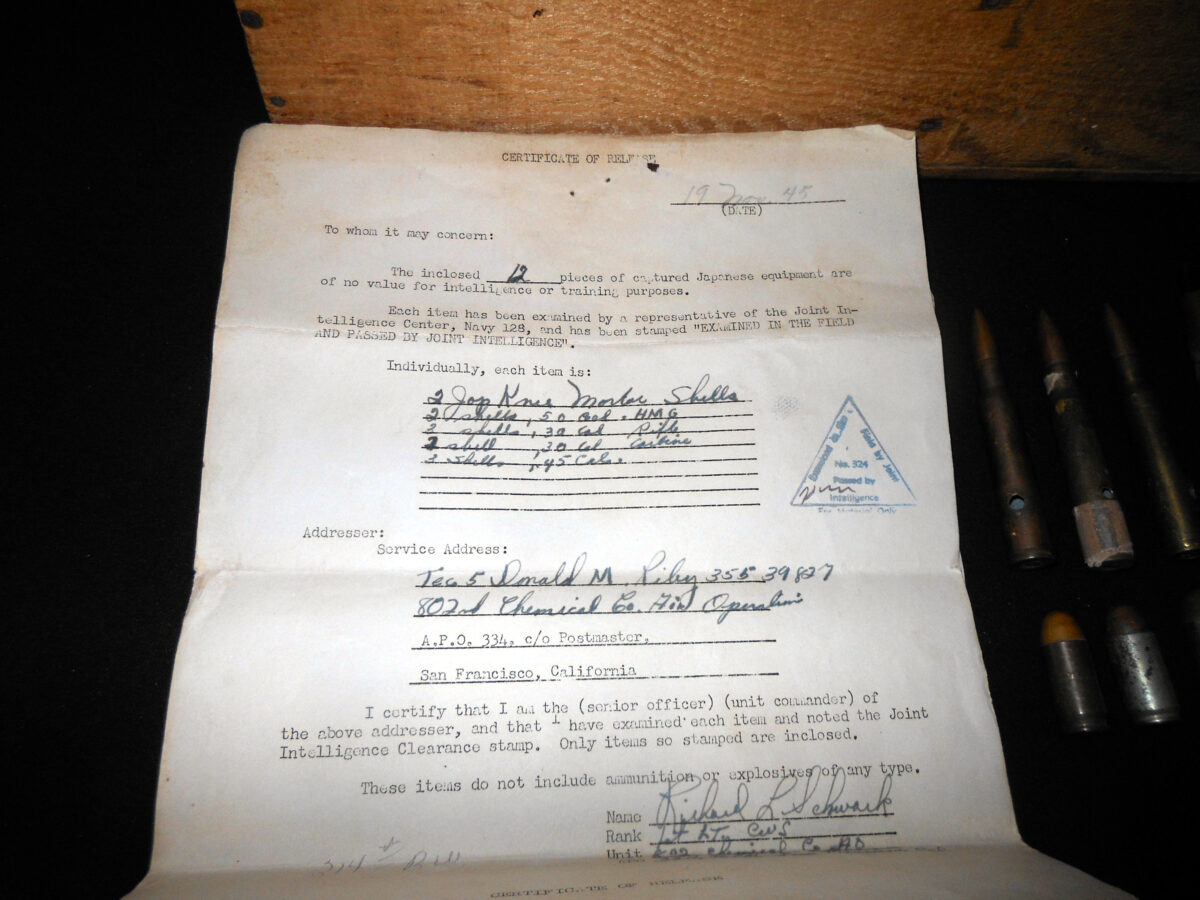 CERTIFICATE OF RELEASE
19 Nov. 45
(DATE)
To whom it may concern:
The inclosed 12 pieces of captured Japanese equipment are
of no value for intelligence or training purposes.
Each item has been examined by a representative of the Joint In-
telligence Center, Navy 128, and has been stamped "EXAMINED IN THE FIELD
AND PASSED BY JOINT INTELLIGENCE".
Individually, each item is:
2 Jap Knee Mortar Shells
2 shells, 50 Cal. HMG
3 shells, 30 Cal Rifle
2 shell, 30 Cal Carbine
3 Shells, 45 Cal.
Examined in the Field by Joint
No. 324
Passed by
Intelligence
For Material Only
Addresser:
Service Address:
Tec 5 Donald M. Riley 355 39827
802nd Chemical Co. Air Operations
A.P.O. 334, c/o Postmaster,
San Francisco, California
I certify that I am the (senior officer) (unit commander) of
the above addresser, and that I have examined each item and noted the Joint
Intelligence Clearance stamp. Only items so stamped are inclosed.
These items do not include ammunition or explosives of any type.
Name Richard L Schwark
Rank 1st Lt, CWS
Unit 802 Chemical Co AO
CERTIFICATE OF RELEASE